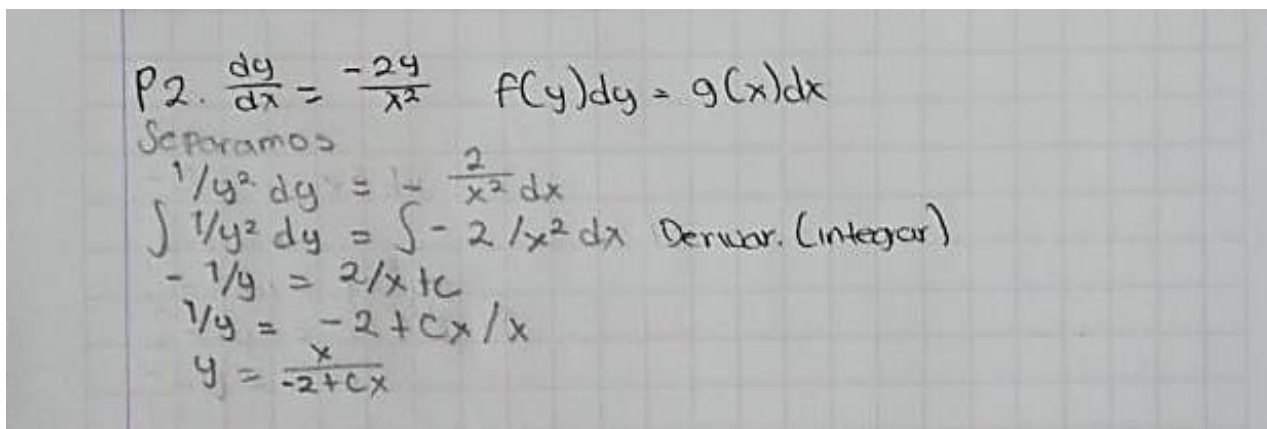 P2. dy/dx = -2y/x² f(y)dy = g(x)dx
Separamos
1/y² dy = - 2/x² dx
∫ 1/y² dy = ∫ - 2/x² dx Derivar. (integar)
- 1/y = 2/x+c
1/y = -2+Cx/x
y = x/-2+Cx